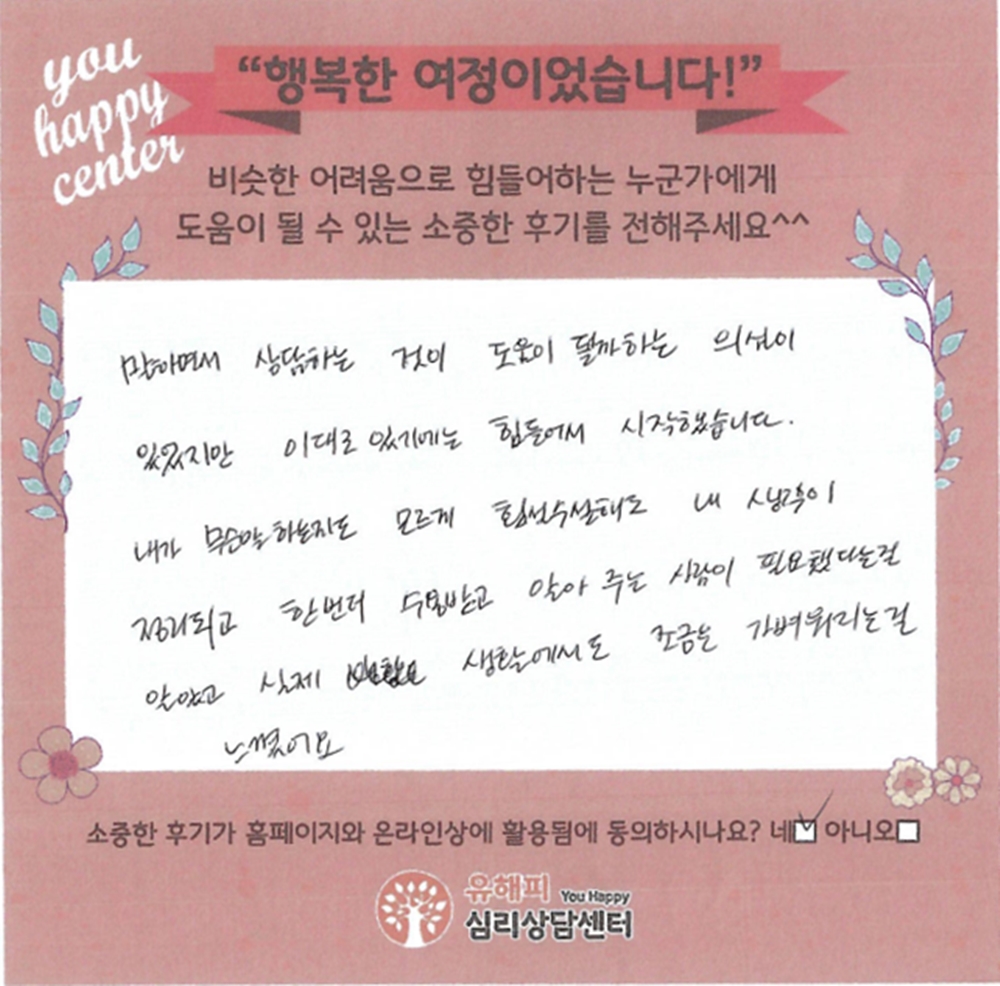 you
happy
center
“행복한 여정이었습니다!”
비슷한 어려움으로 힘들어하는 누군가에게
도움이 될 수 있는 소중한 후기를 전해주세요^^
말하면서 상담하는 것이 도움이 될까하는 의심이
있었지만 이대로 있기에는 힘들어서 시작했습니다.
내가 무슨말 하는지도 모르게 횡설수설해도 내 생각이
정리되고 한번더 수용받고 알아 주는 사람이 필요했다는걸
알았고 실제 생활에서도 조금은 가벼워지는걸
느꼈어요
소중한 후기가 홈페이지와 온라인상에 활용됨에 동의하시나요? 네 아니오
유해피 You Happy
심리상담센터